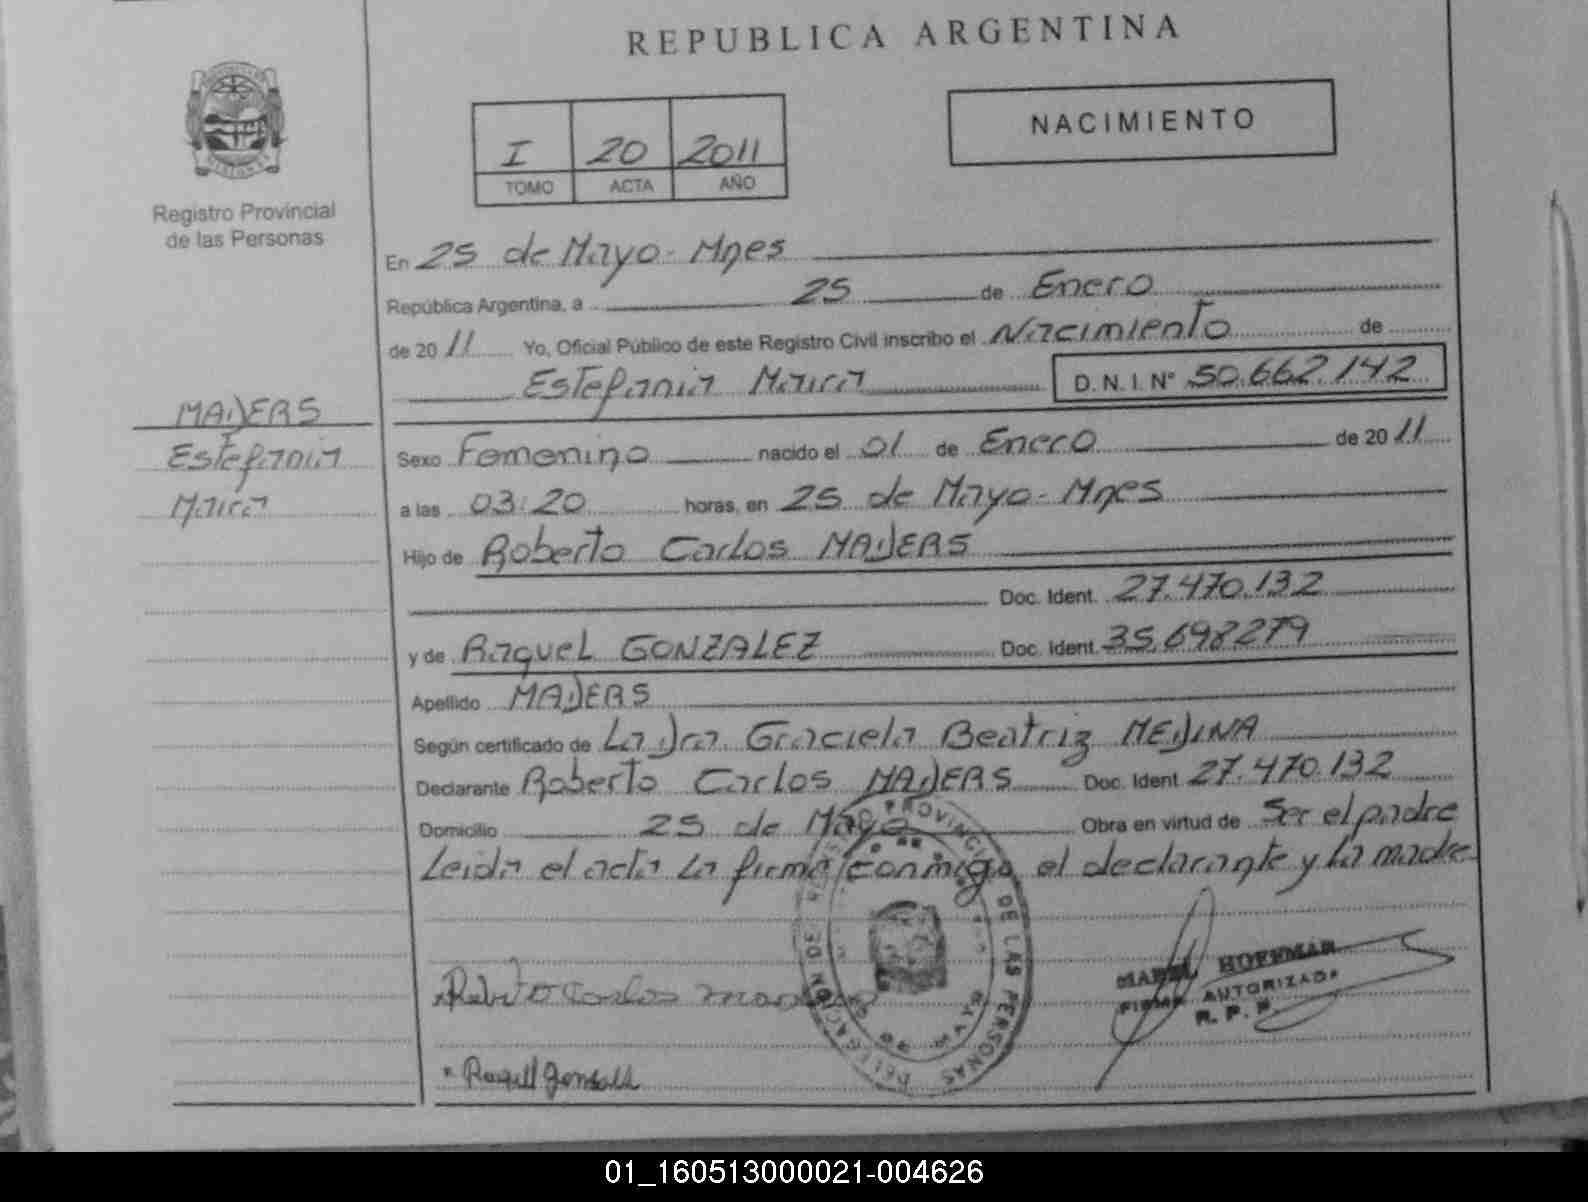 REPUBLICA ARGENTINA
NACIMIENTO
I 20 2011
TOMO ACTA AÑO
Registro Provincial
de las Personas
En 25 de Mayo - Mnes
República Argentina, a 25 de Enero
de 2011 Yo, Oficial Público de este Registro Civil inscribo el Nacimiento de
Estefania Maira D.N.I. Nº 50.662.142
MADERS
Estefania
Maira
Sexo Femenino nacido el 01 de Enero de 2011
a las 03:20 horas, en 25 de Mayo - Mnes
Hijo de Roberto Carlos MADERS
Doc. Ident. 27.470.132
y de Raquel GONZALEZ Doc. Ident. 35.698279
Apellido MADERS
Según certificado de La Dra. Graciela Beatriz MEDINA
Declarante Roberto Carlos MADERS Doc. Ident. 27.470.132
Domicilio 25 de Mayo Obra en virtud de Ser el padre
Leida el acta La firma conmigo el declarante y La madre
DE LAS PERSONAS
HOFFMAN
FIRMA AUTORIZADA
R. P. P.
Roberto Carlos
01_160513000021-004626